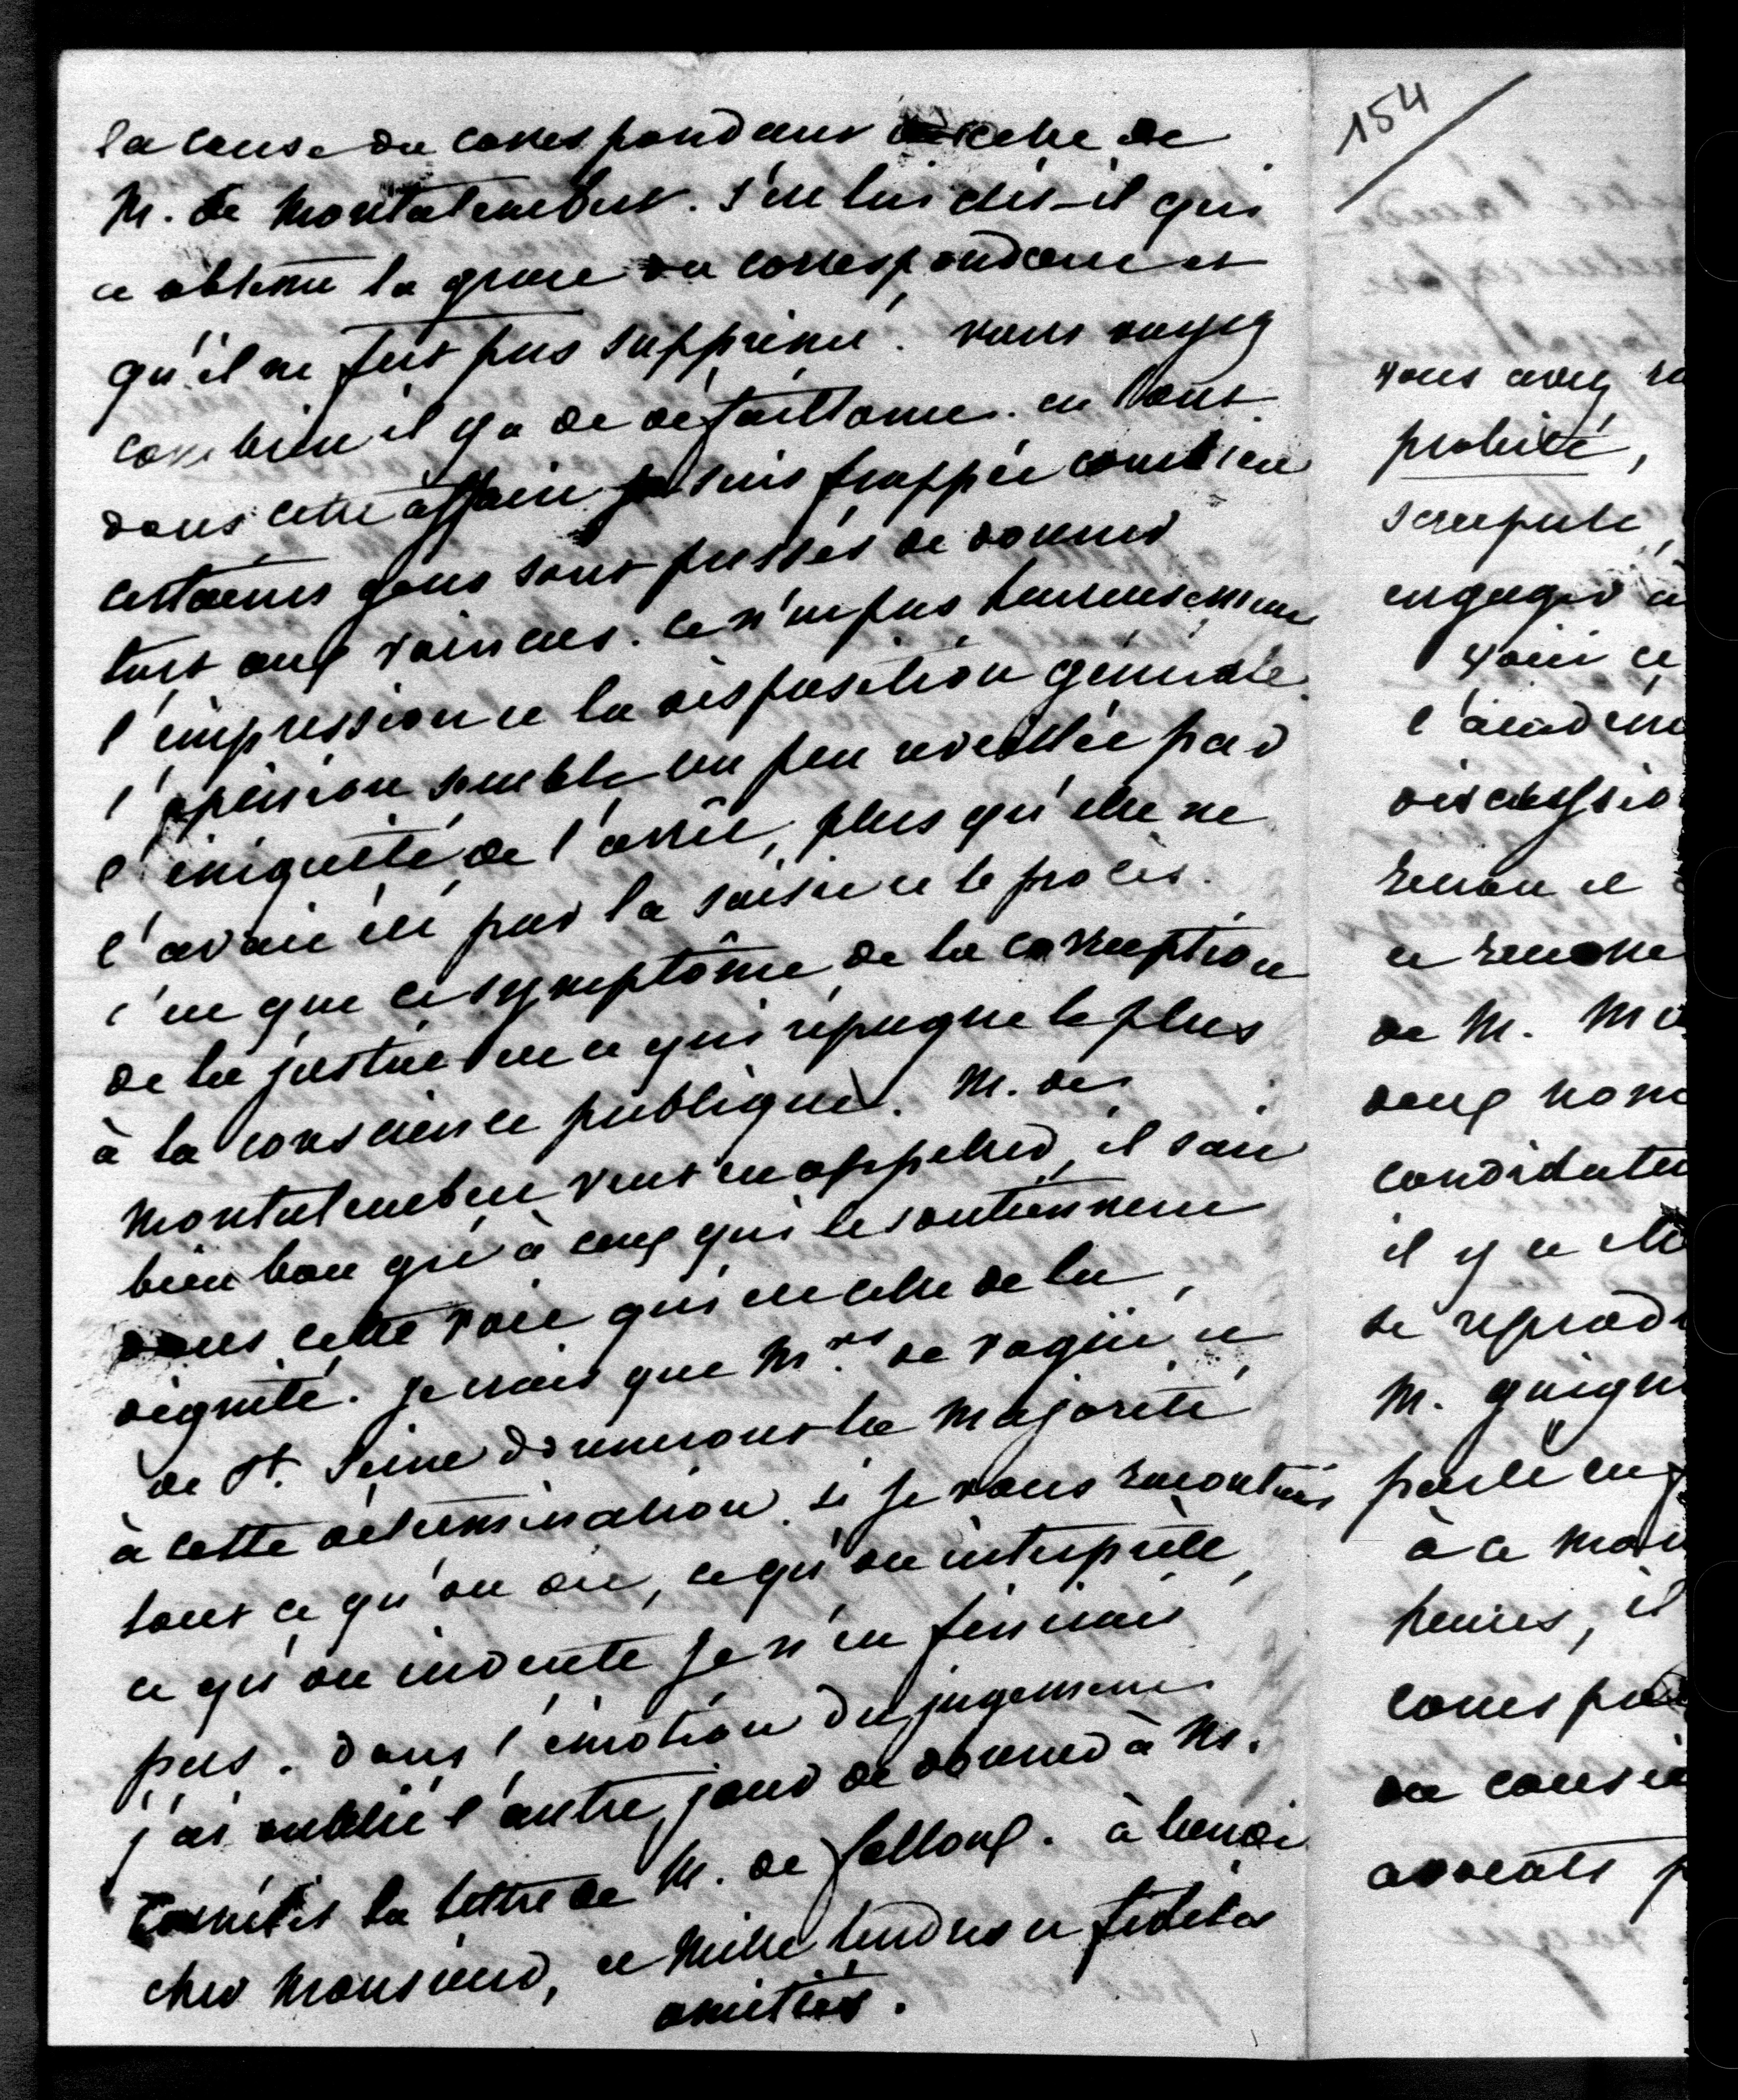 la cause du correspondant de celle de
M. de Montalembert. C'est lui dit-il qui
a obtenu la grace du correspondant et
qu'il ne fut pas supprimé. vous voyez
combien il y a de défaillance. en tout
dans cette affaire je suis frappée combien
certaines gens sont pressés de donner
tort aux vaincus. ce n'est pas heureusement
l'impression et la disposition générale.
l'opinion semble un peu reveillée par
l'iniquité de l'arrêt, plus qu'elle ne
l'avait été par la saisie et le procès.
c'est que ce symptôme de la corruption
de la justice est ce qui répugne le plus
à la conscience publique. M. de
Montalembert veut en appeler, il sait
bien bon gré à ceux qui le soutiennent
dans cette voie qui est celle de la
dignité. je crois que Mrs de Vogüé et
de St. Seine donneront la majorité
à cette détermination. si je vous racontais
tout ce qu'on dit, ce qu'on interprète,
ce qu'on invente je n'en finirais
pas. dans l'émotion du jugement
j'ai oublié l'autre jour de donner à M.
la lettre de M. de falloux. à
cher Monsieur, et Mille tendres et fidèles
amitiés.
154
vous avez
probité,
scrupule,
engager
voici ce
l'académ
discussio
Renan et
et
de M. Mo
deux nom
candidatu
il y a
se reprod
M. guign
parlé en
à ce mom
heures, il
corresp
du consei
avocats p